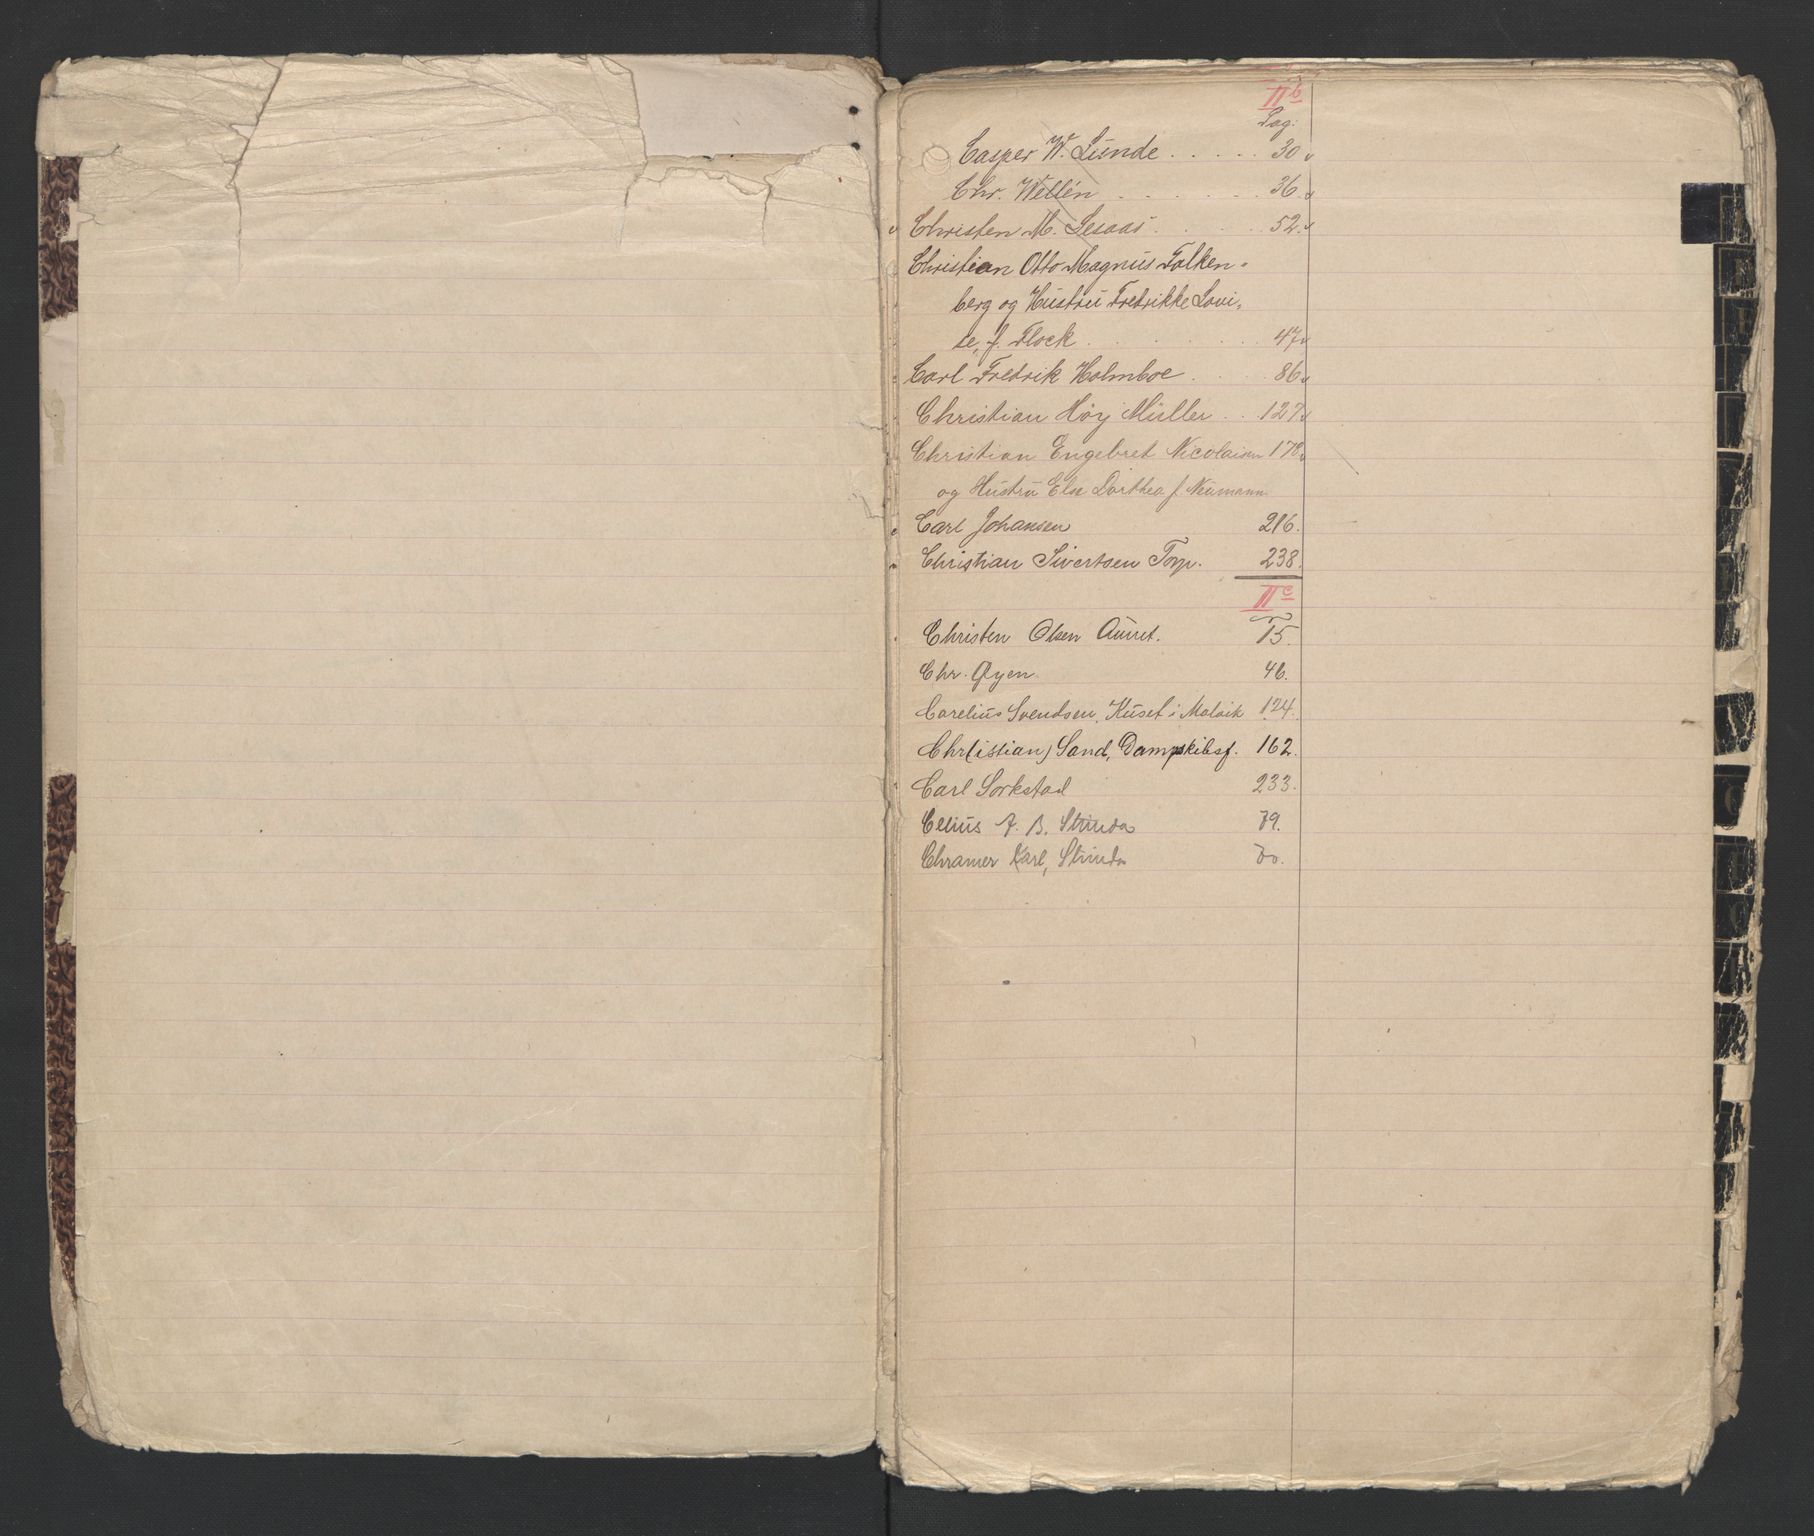 II b
Pag:
Casper W. Lunde . . . . . 30 v
Chr. Wellén . . . . . . . 36. v
v Christen M. Lesaas . . . . . 52. v
Christian Otto Magnus Falken-
berg og Hustru Fredrikke Lovi-
se, f. Flock . . . . . . . 47 v
Carl Fredrik Holmboe . . . . 86 v
Christian Høij Müller . . 127. v
Christian Engebret Nicolaisen 178. v
og Hustru Else Dorthea f. Neumann
Carl Johansen 216.
Christian Sivertsen Torp. 238.
II c
Christen Olsen Aunet. 15.
Chr. Øyen. 46.
Carelius Svendsen, Kuset i Malvik 124.
Chr(istian) Sand, Dampskibsf. 162.
Carl Sorkstad 233.
Celius A. B. Strinda 79.
Chramer Karl, Strinda 70.